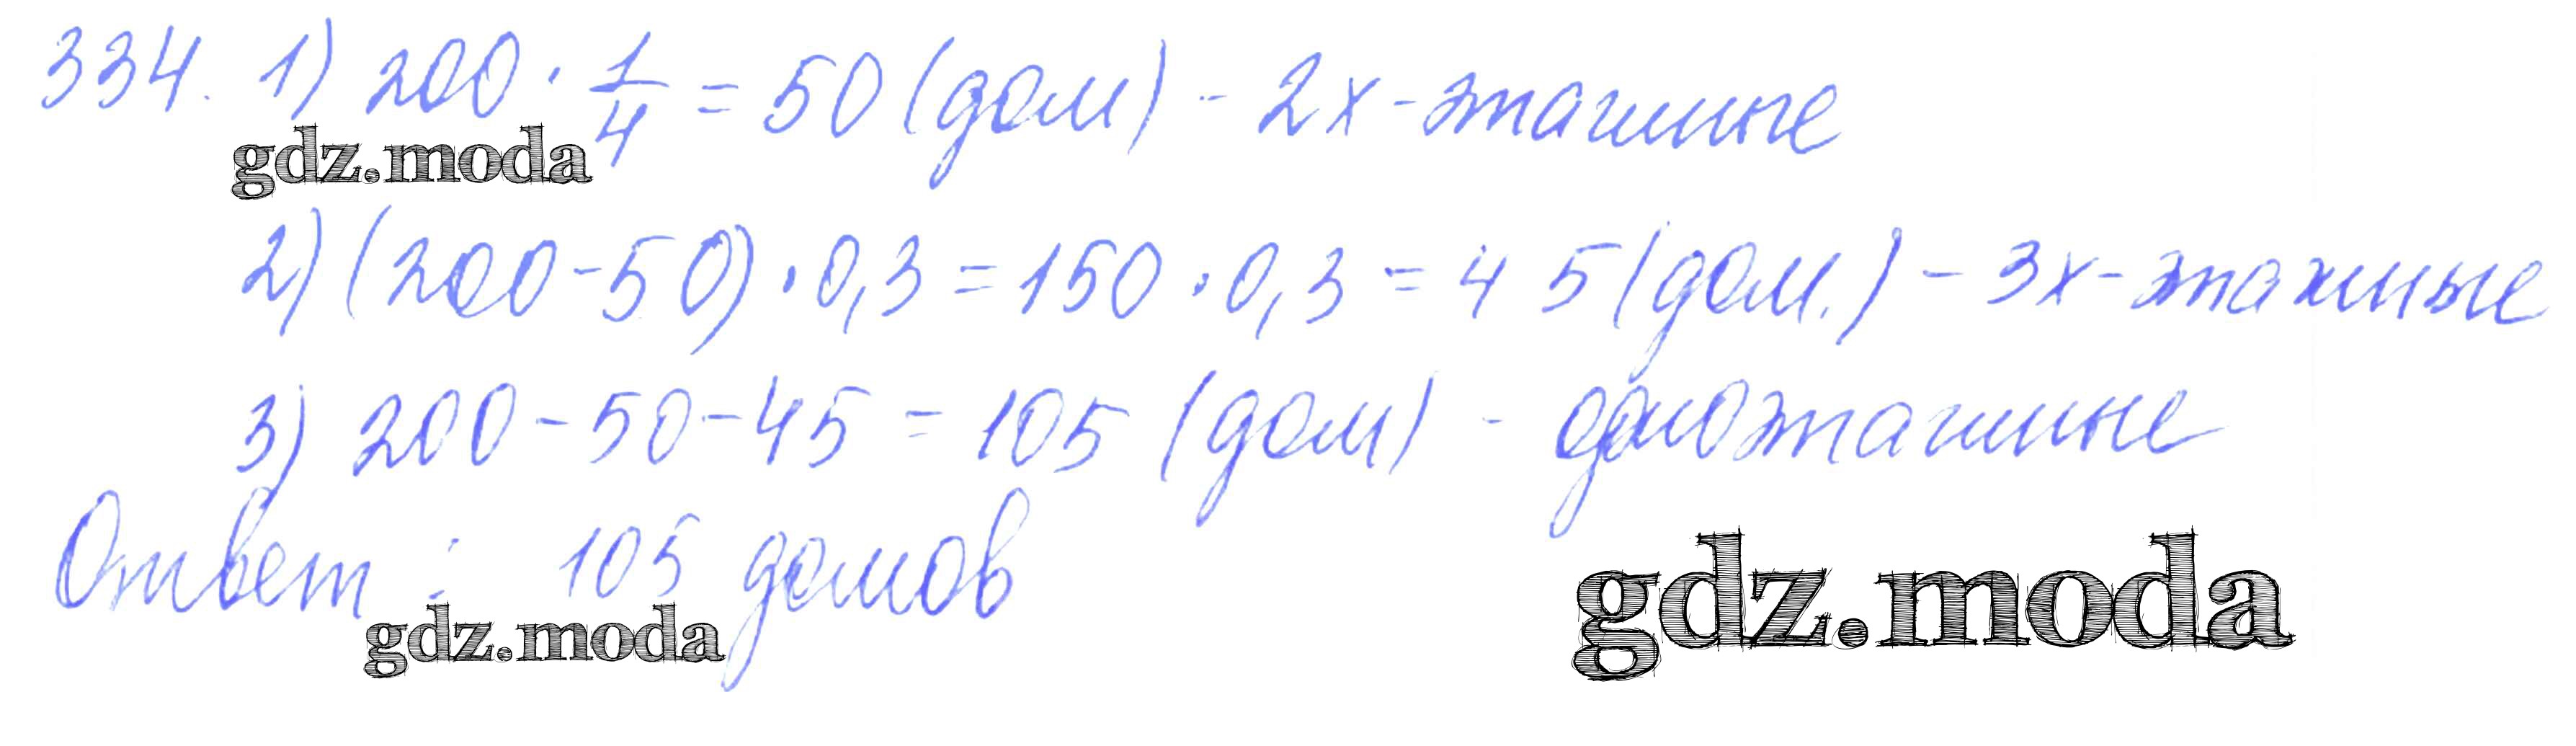 334. 1) 200 · 1/4 = 50 (дом) - 2х-этажные
gdz.moda
2) (200-50) · 0,3 = 150 · 0,3 = 45 (дом.) - 3х-этажные
3) 200-50-45 = 105 (дом) - одноэтажные
Ответ: 105 домов
gdz.moda
gdz.moda